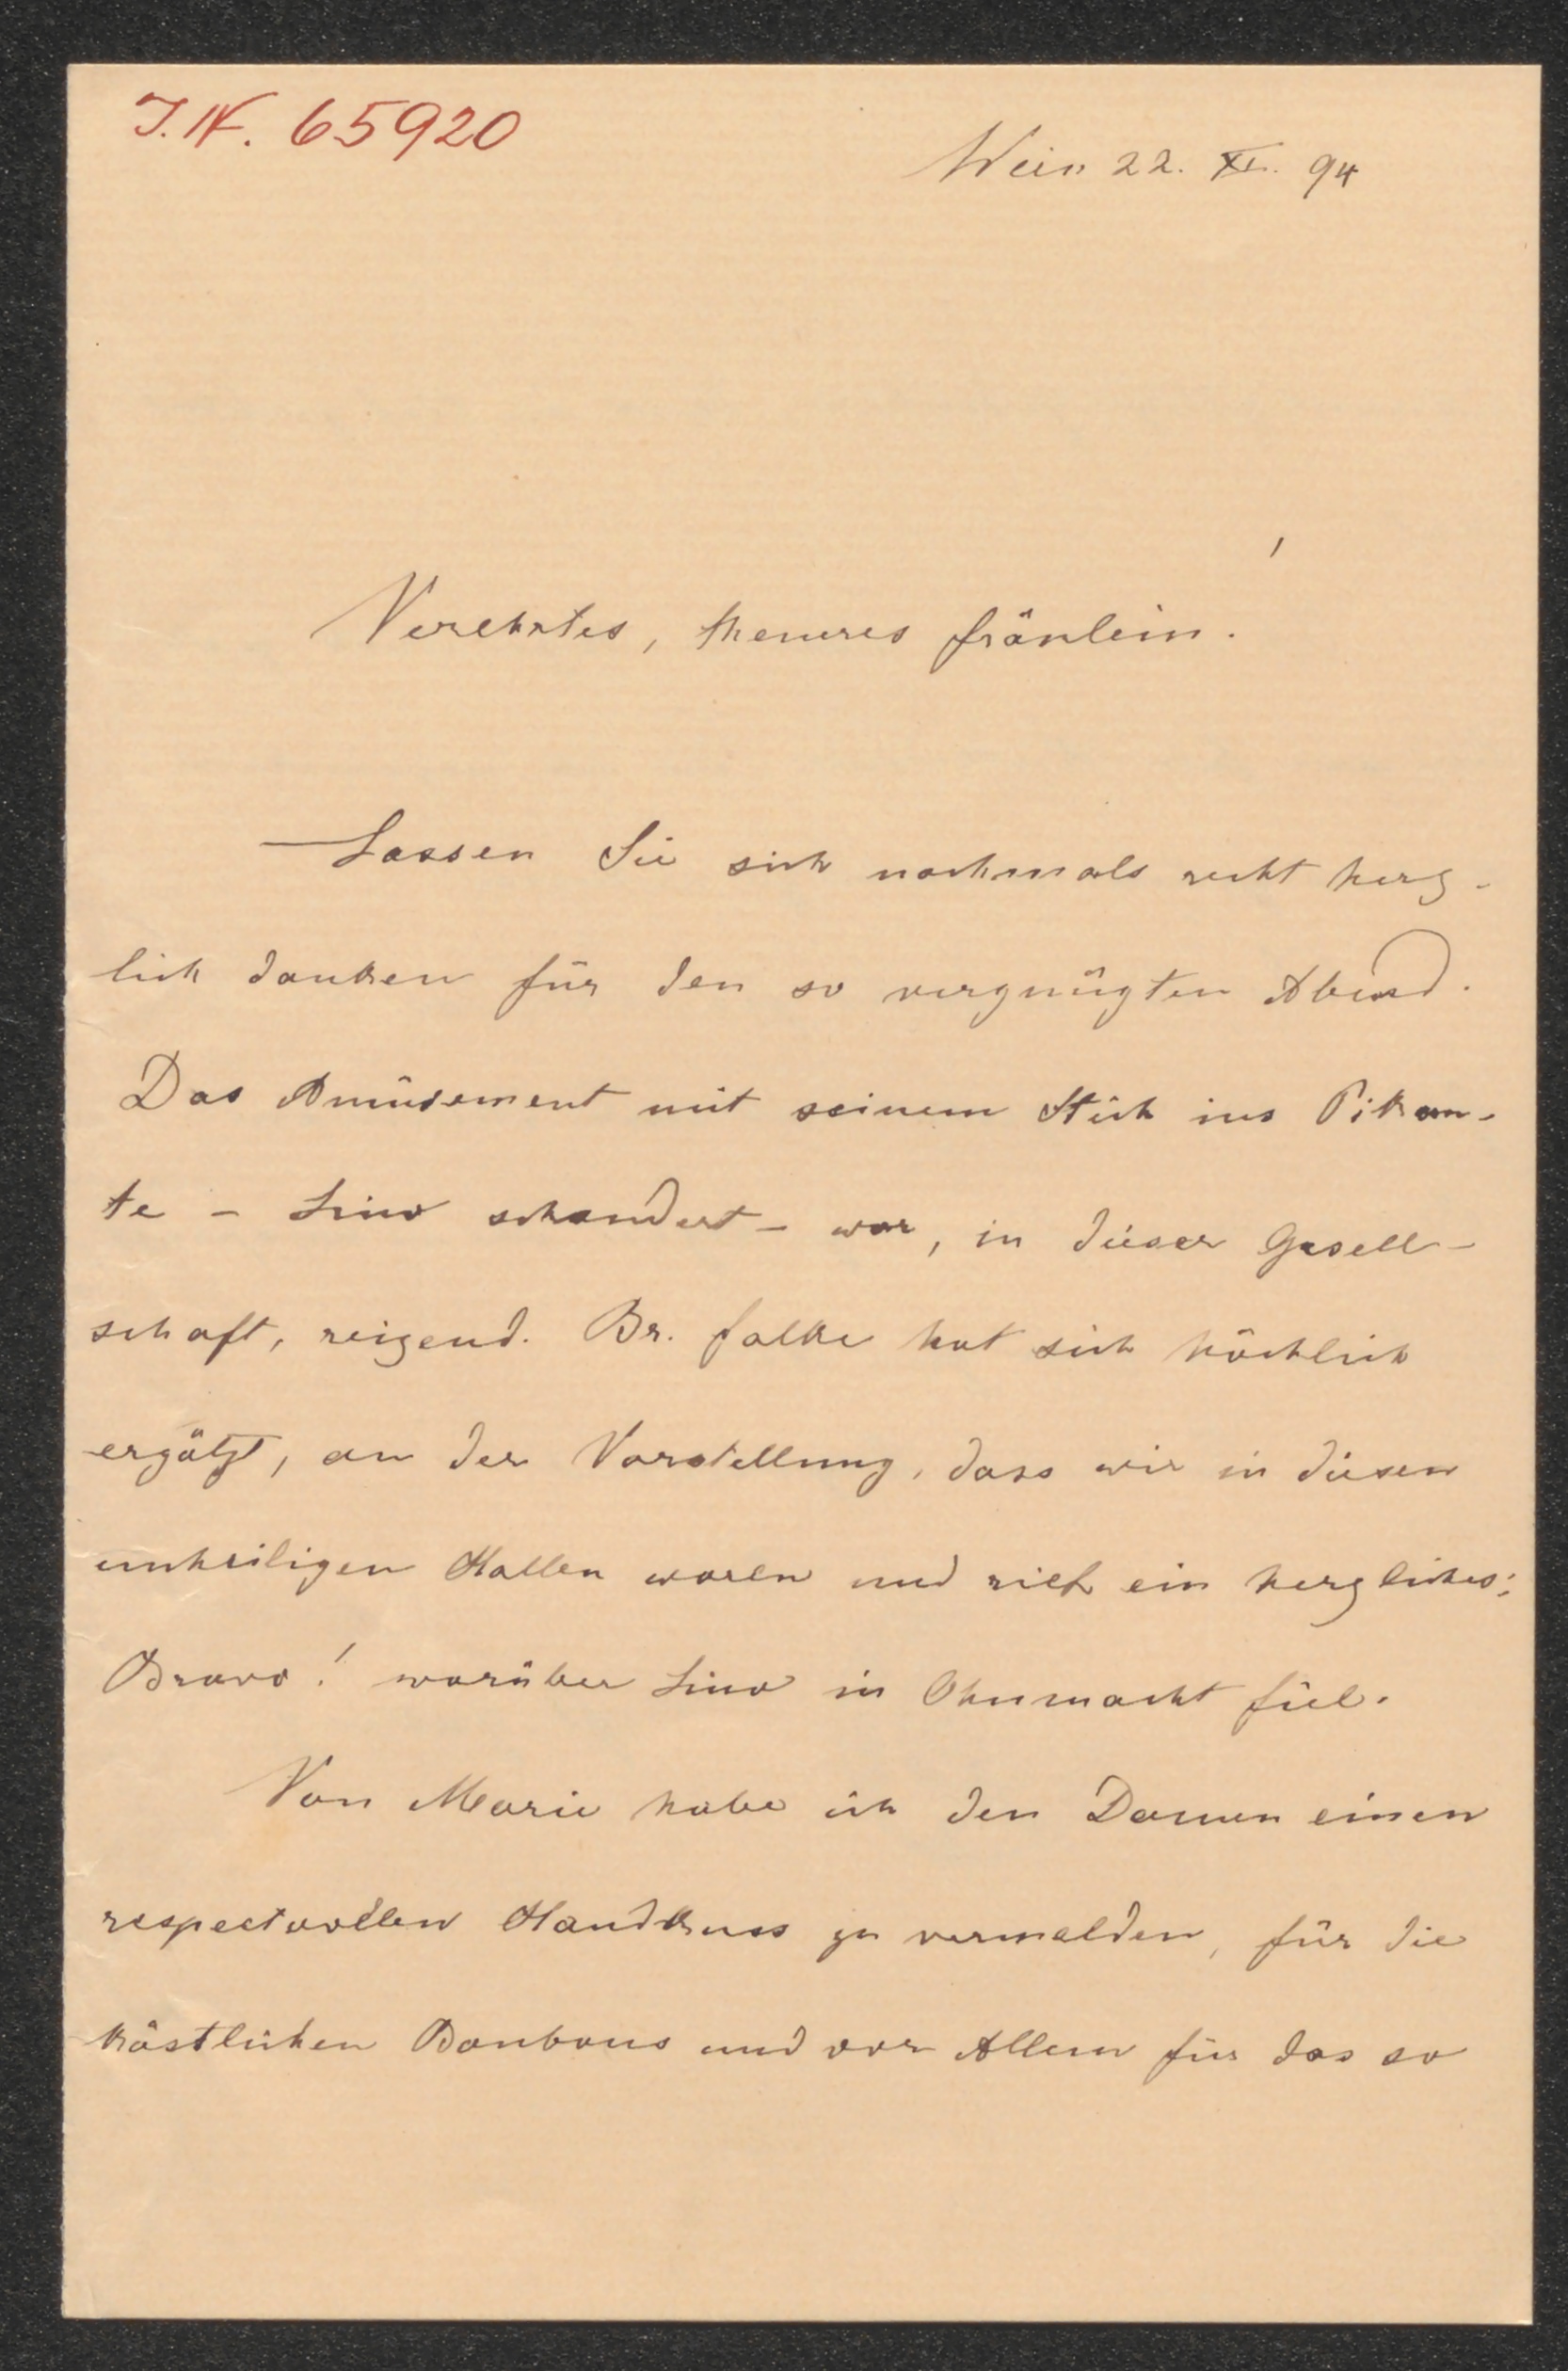 J.N. 65920
Wein 22. XI. 94
Verehrtes, theueres Fräulein!
Lassen Sie sich nochmals recht herz-
lich danken für den so vergnügten Abend.
Das Amüsement mit seinem Stich ins Pikan-
te - Lino schaudert - war, in dieser Gesell-
schaft, reizend. Br. Falke hat sich höchlich
ergötzt, an der Vorstellung, dass wir in diesen
unheiligen Hallen waren und rief ein herzliches:
Bravo! worüber Lino in Ohnmacht fiel.
Von Marie habe ich den Damen einen
respectvollen Handkuss zu vermelden, für die
köstlichen Bonbons und vor Allem für das so